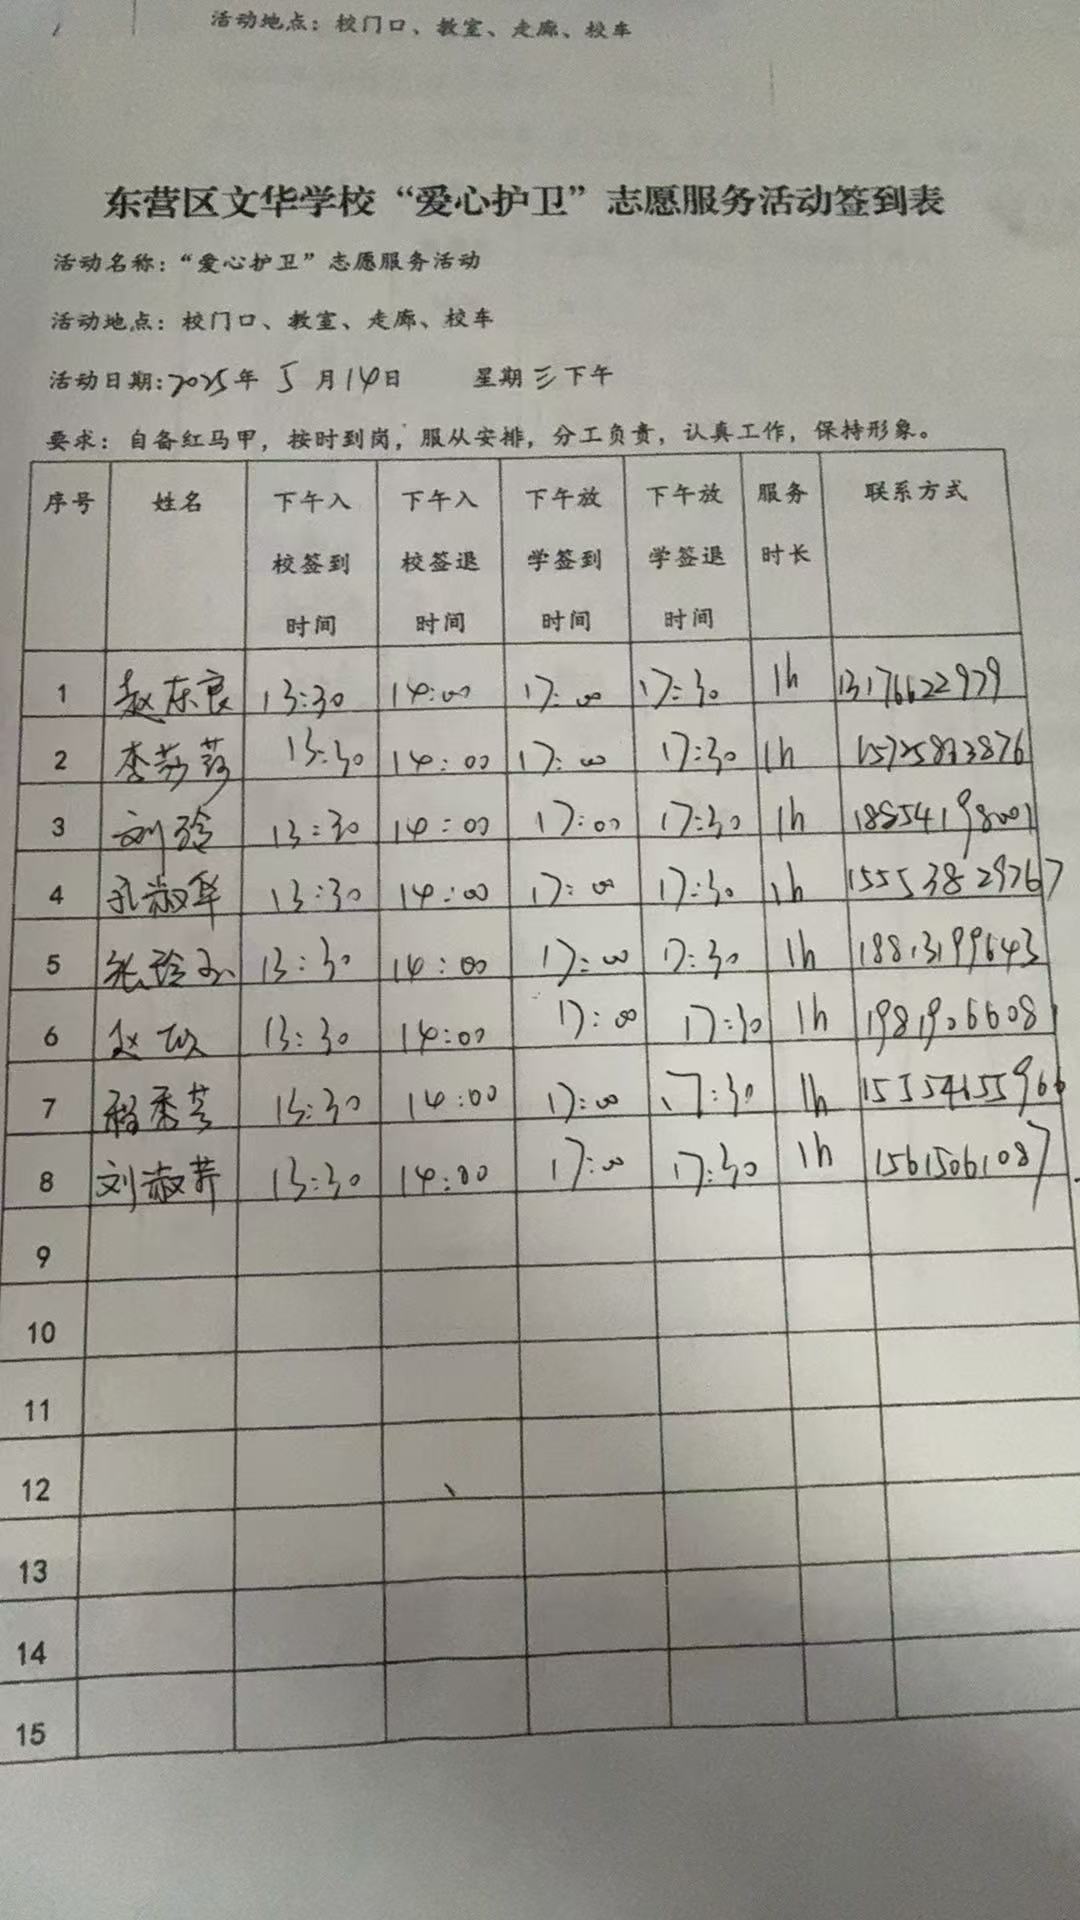 活动地点：校门口、教室、走廊、校车
东营区文华学校“爱心护卫”志愿服务活动签到表
活动名称：“爱心护卫”志愿服务活动
活动地点：校门口、教室、走廊、校车
活动日期：2025年 5 月14日 星期三下午
要求：自备红马甲，按时到岗，服从安排，分工负责，认真工作，保持形象。
序号 姓名 下午入校签到时间 下午入校签退时间 下午放学签到时间 下午放学签退时间 服务时长 联系方式
1 赵东良 13:30 14:00 17:00 17:30 1h 13176622979
2 李莎莎 13:30 14:00 17:00 17:30 1h
3 刘玲 13:30 14:00 17:00 17:30 1h 18854198001
4 孔淑华 13:30 14:00 17:00 17:30 1h 15553829767
5 张玲 13:30 14:00 17:00 17:30 1h 18813199643
6 赵 13:30 14:00 17:00 17:30 1h 19819066081
7 程秀芝 13:30 14:00 17:00 17:30 1h 15554655966
8 刘淑荞 13:30 14:00 17:00 17:30 1h 15615061087
9
10
11
12
13
14
15